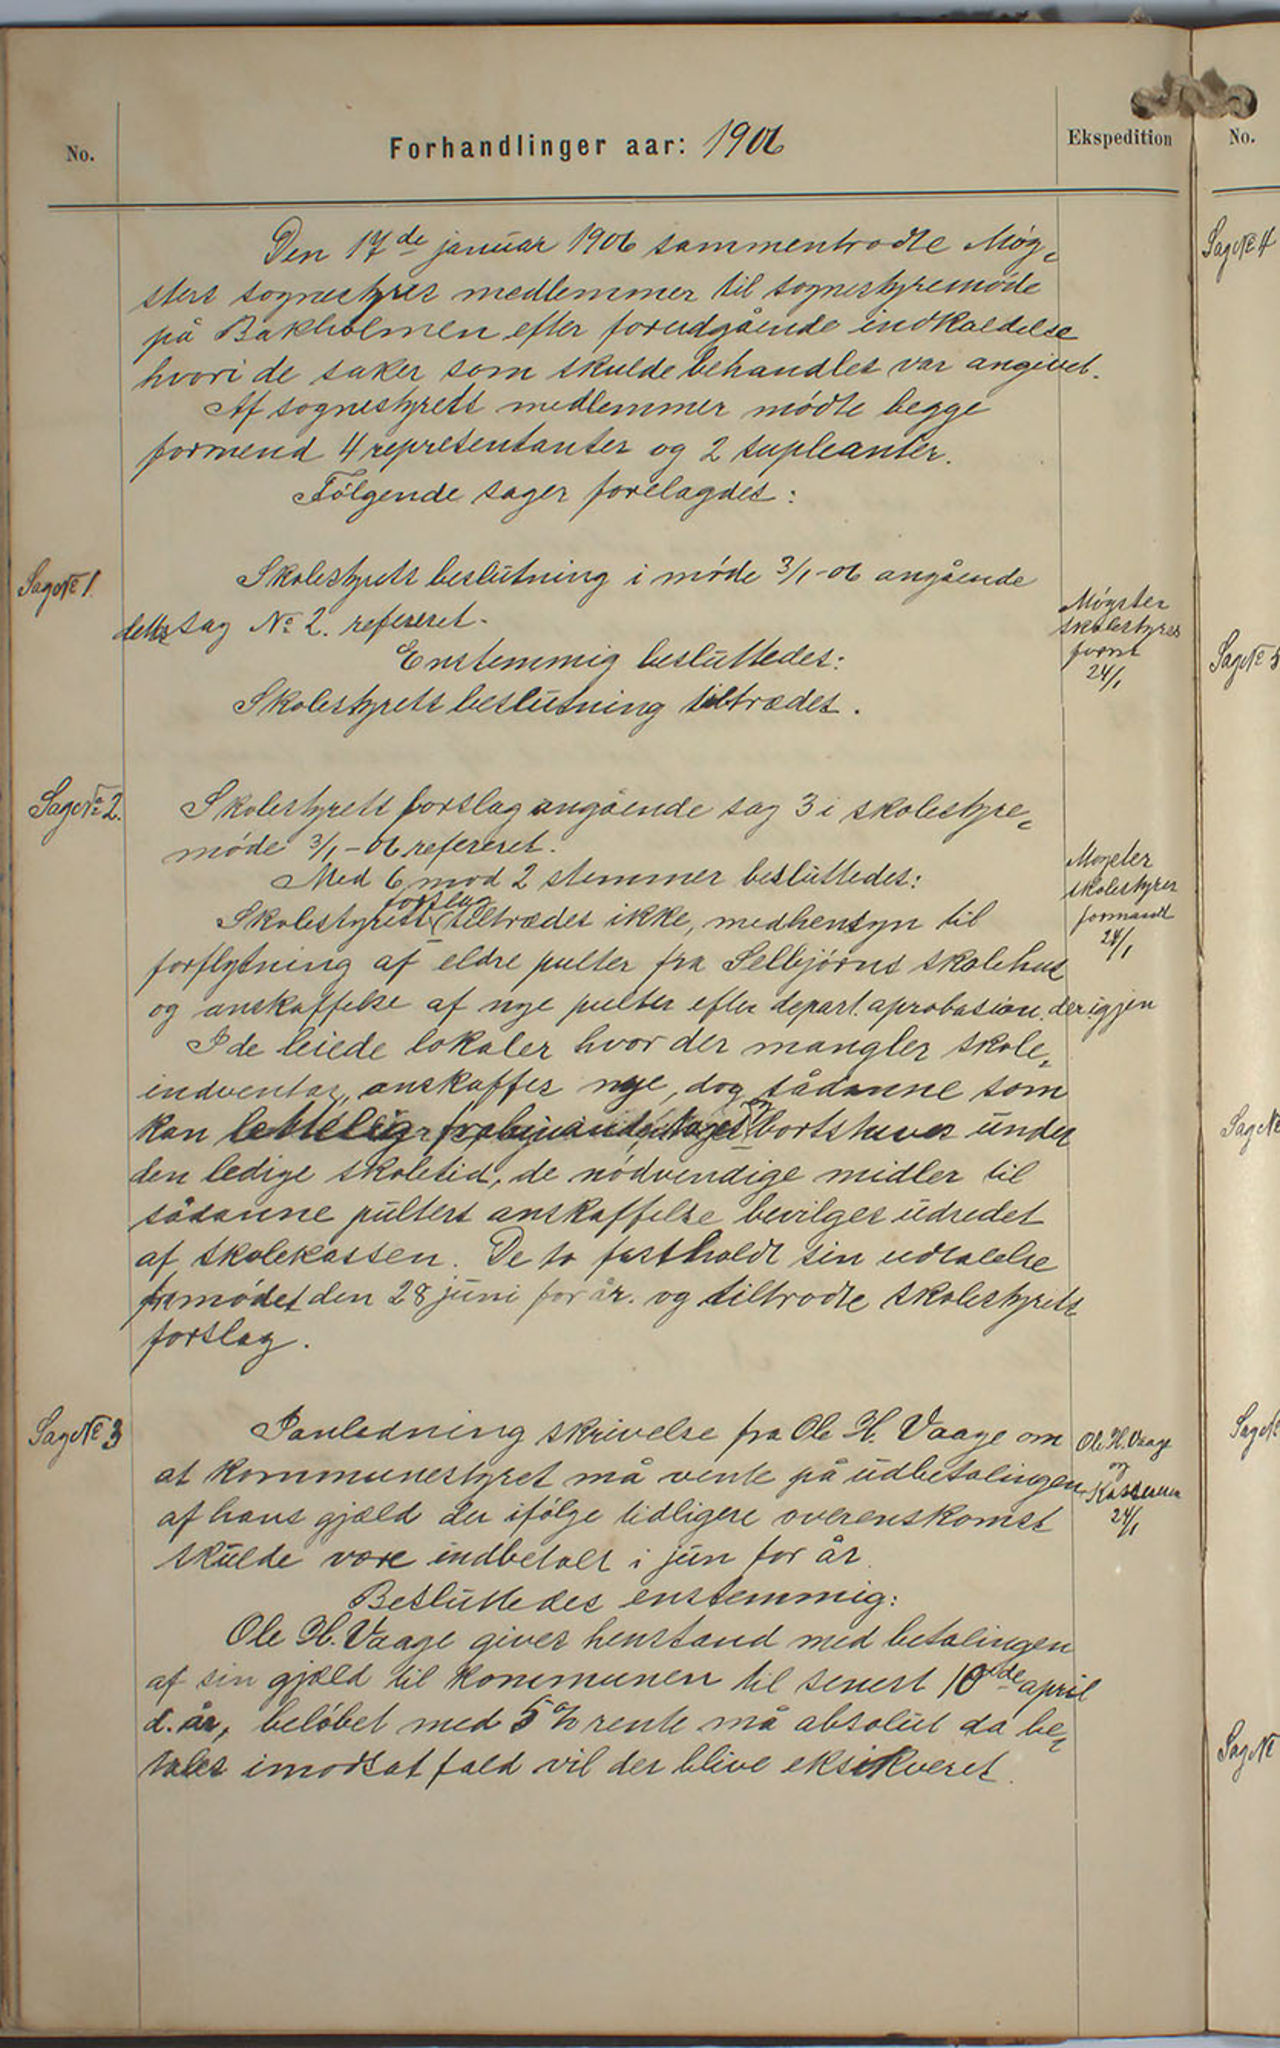 No.
Forhandlinger aar: 1906
Ekspedition
No.
Den 17de januar 1906 sammentrådte Møg-
sters sognestyres medlemmer til sognestyremøde
på Bakholmen efter forudgående indkaldelse
hvori de saker som skulde behandles var angivet.
Af sognestyrets medlemmer mødte begge
formend 4 representanter og 2 supleanter.
Følgende sager forelagdes:
Sag № 1
Skolestyrets beslutning i møde 3/1-06 angående
dettes sag № 2. refereret.
Enstemmig besluttedes:
Skolestyrets beslutning tiltrædes.
Møgster
skolestyres
formd
24/1
Sag № 2.
Skolestyrets forslag angående sag 3 i skolestyre-
møde 3/1-06 refereret.
Med 6 mod 2 stemmer besluttedes:
Skolestyrets forslag tiltrædes ikke, medhensyn til
forflytning af eldre pulter fra Selbjørns skolehus
og anskaffelse af nye pulter efter depart. aprobasion. der igjen
I de leiede lokaler hvor der mangler skole-
indventar, anskaffes nye, dog sådanne som
kan lettelig fra hinanden tages og bortstuves under
den ledige skoletid, de nødvendige midler til
sådanne pulters anskaffelse bevilges udredet
af skolekassen. De to fastholdt sin udtalelse
fra mødet den 28 juni for år. og tiltrådte skolestyrets
forslag.
Møgster
skolestyres
formand
24/1
Sag № 3
I anledning skrivelse fra Ole H. Vaage om
at kommunestyret må vente på udbetalingen
af hans gjæld der ifølge tidligere overenskomst
skulde være indbetalt i jun for år.
Besluttedes enstemmig:
Ole H. Vaage gives henstand med betalingen
af sin gjæld til kommunen til senest 10de april
d. år, beløbet med 5 % rente må absolut da be-
tales imodsat fald vil der blive eksikveret.
Ole H. Vaage
og
Kasseren
24/1
Sag № 4
Sag № 5
Sag №
Sag №
Sag №